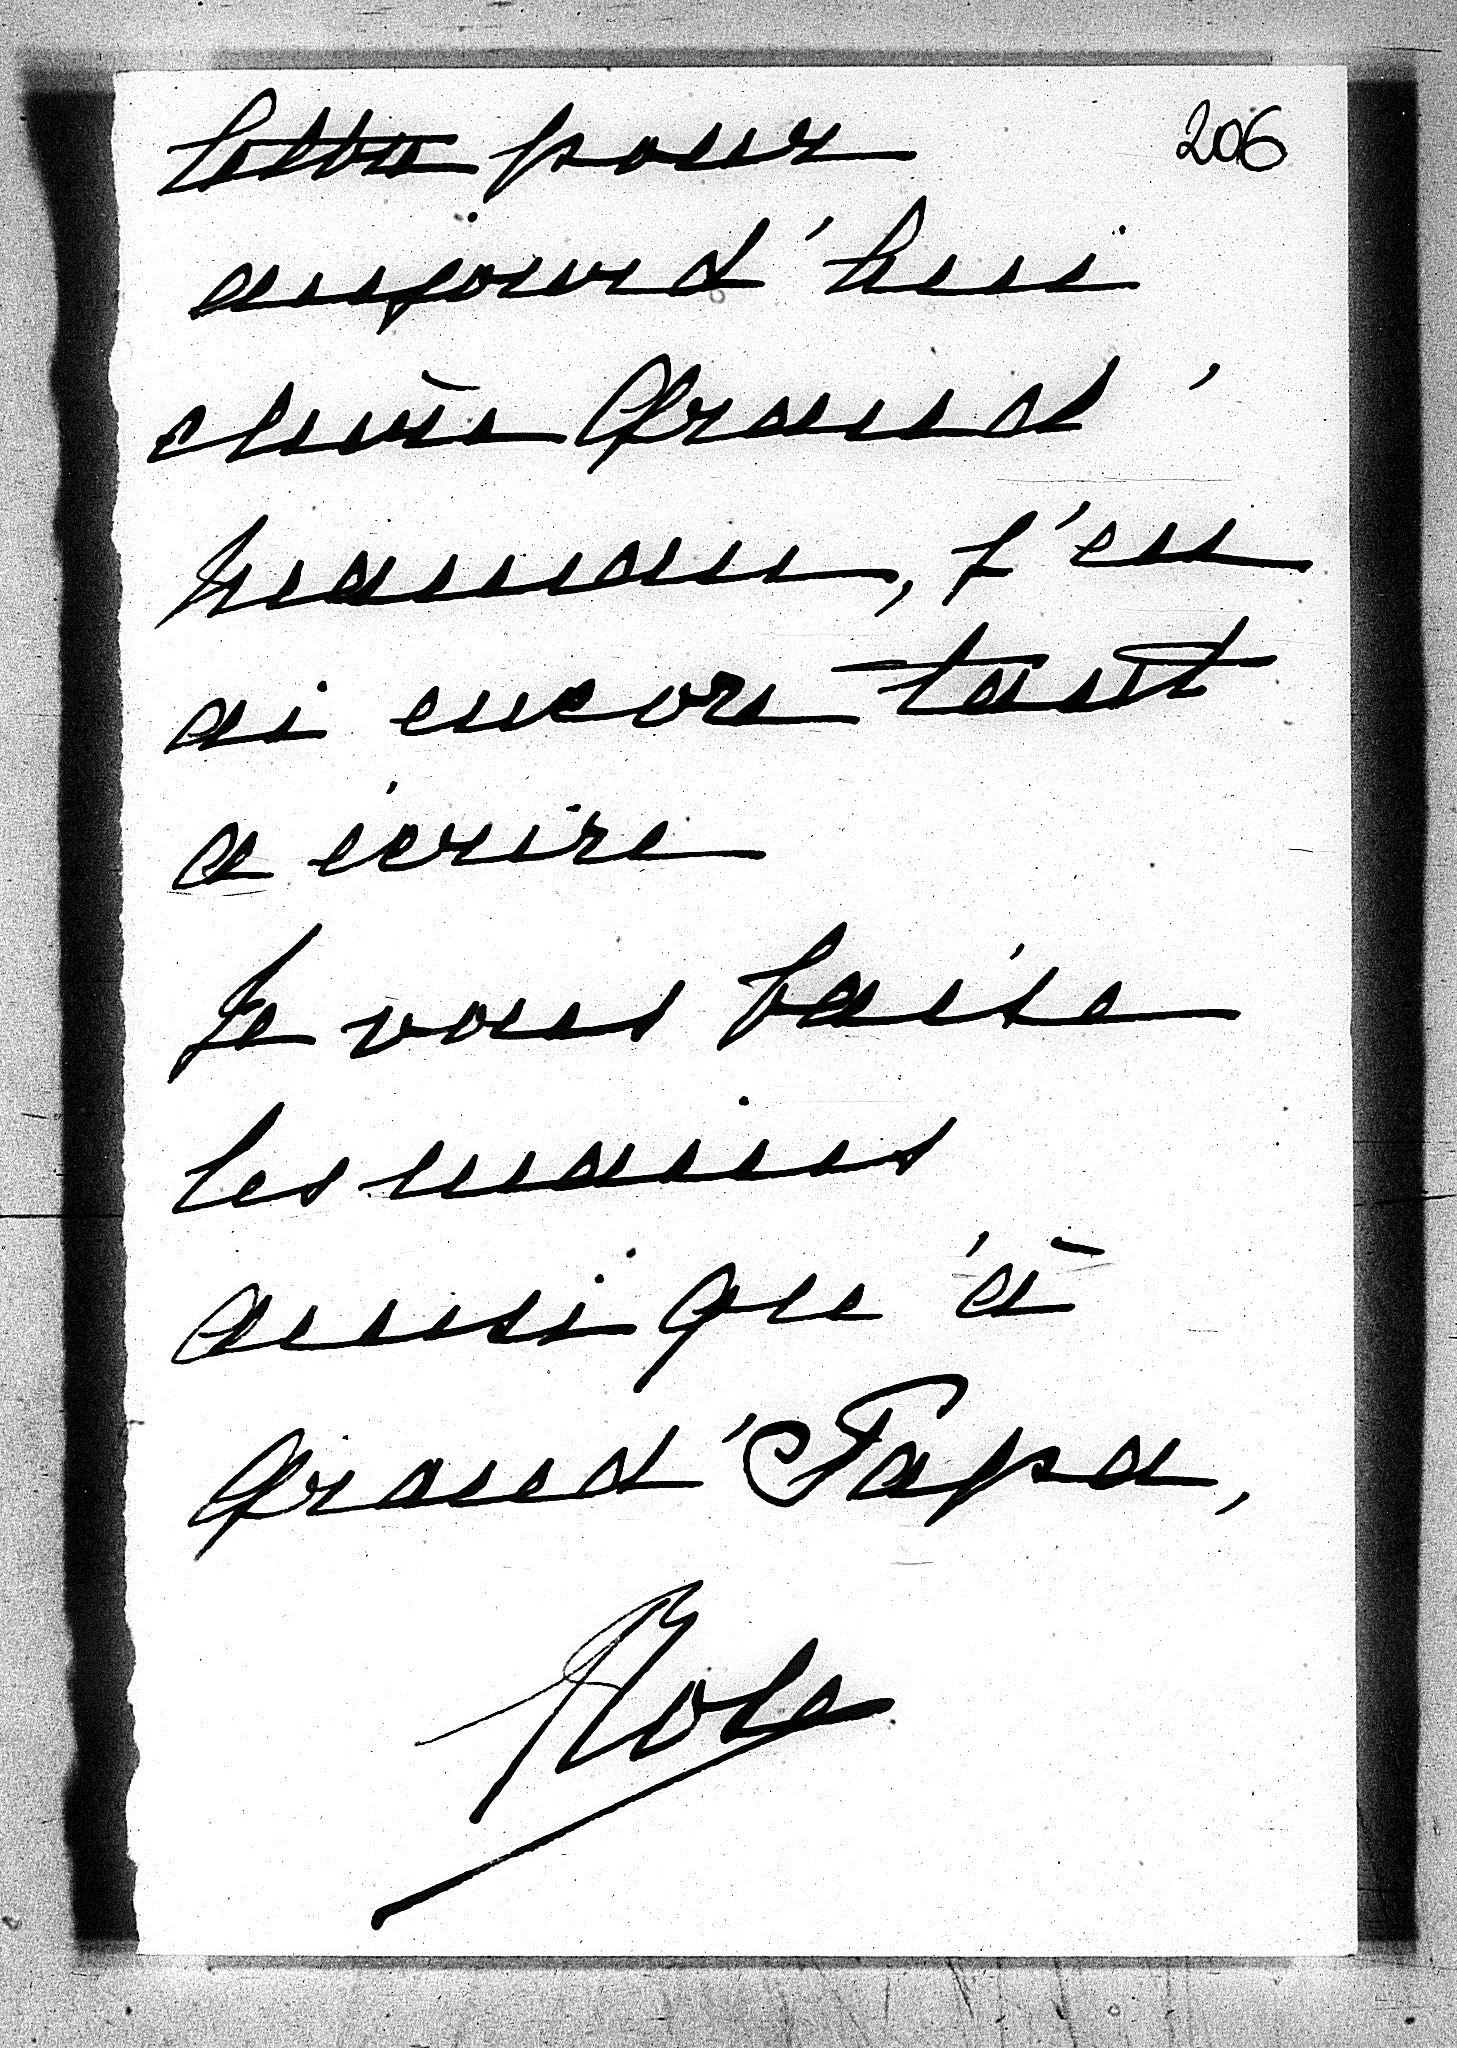 lettre pour
206
aujourd'hui
chère Grand'
Maman, j'en
ai encore tant
a écrire
Je vous baise
les mains
ainsi qu'à
Grand'Papa,